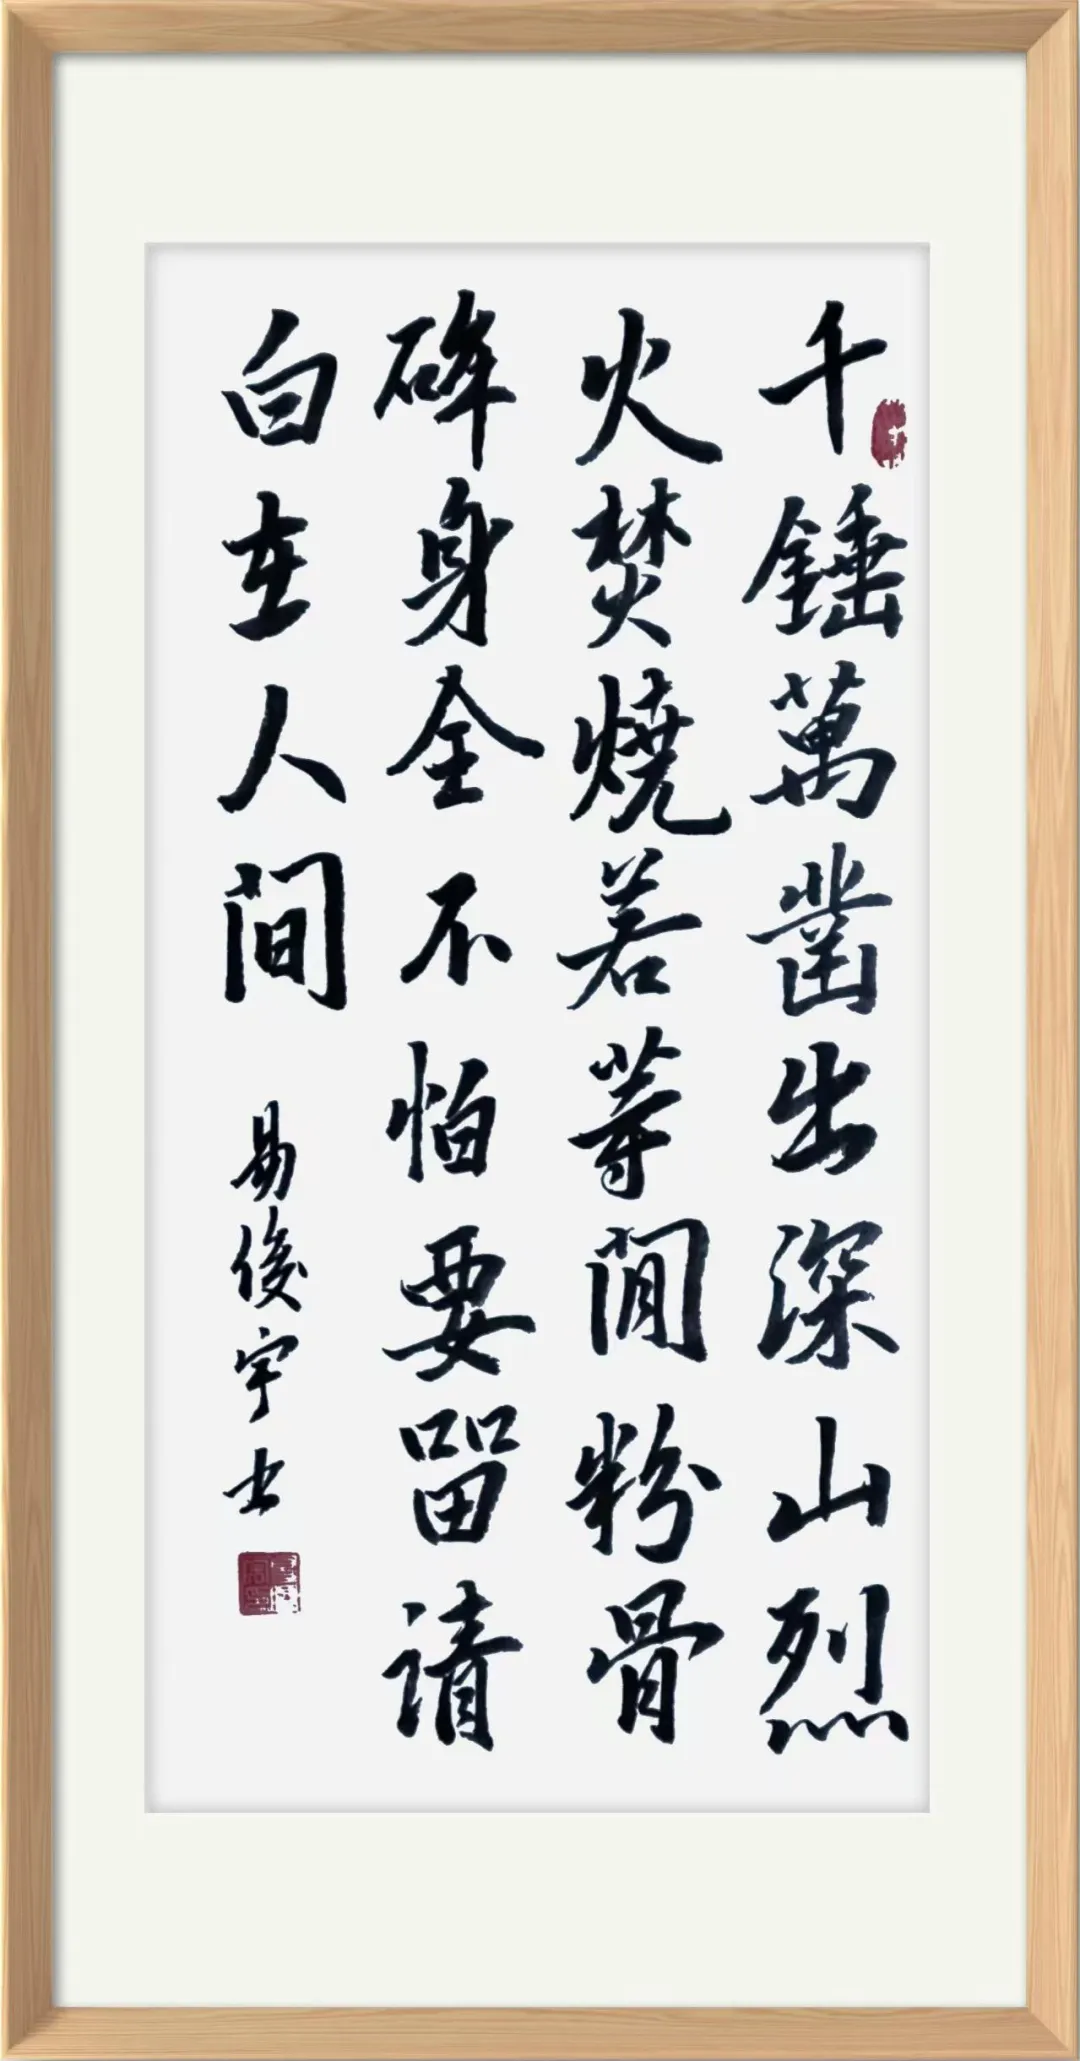 千錘萬凿出深山烈
火焚燒若等閒粉骨
碎身全不怕要留請
白在人間
易俊宇书